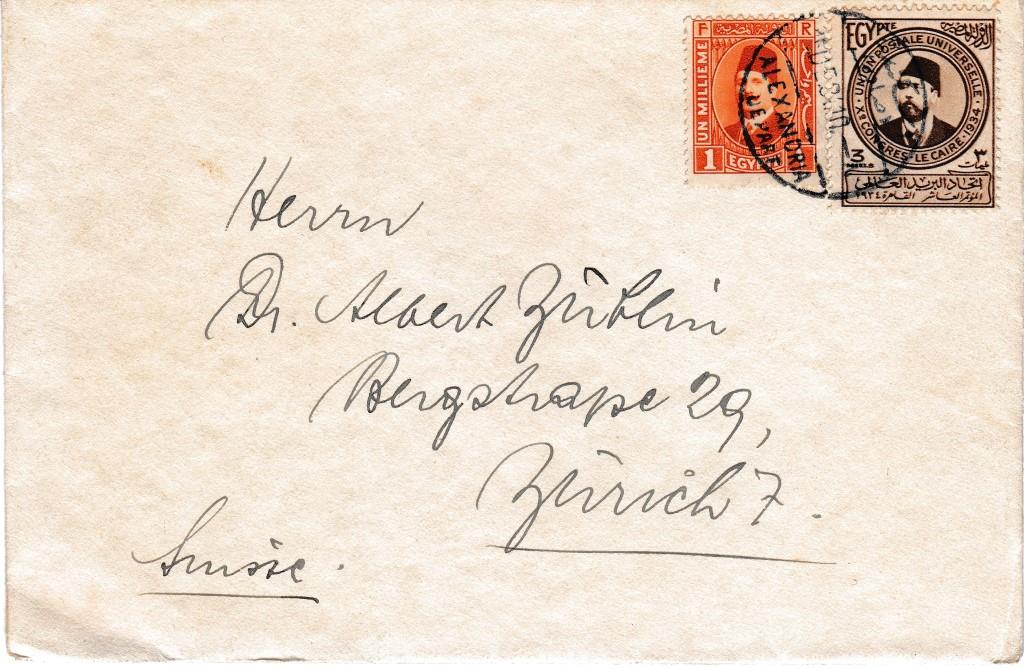 F R
UN MILLIEME
1 EGYP
EGYPTE
UNION POSTALE UNIVERSELLE
Xe CONGRES · LE CAIRE · 1934
3 ٣
اتحاد البريد العالمى
المؤتمر العاشر القاهرة ١٩٣٤
ALEXANDRIA
DEPART
Herrn
Dr. Albert Züblin
Bergstraße 29,
Zürich 7.
Suisse.